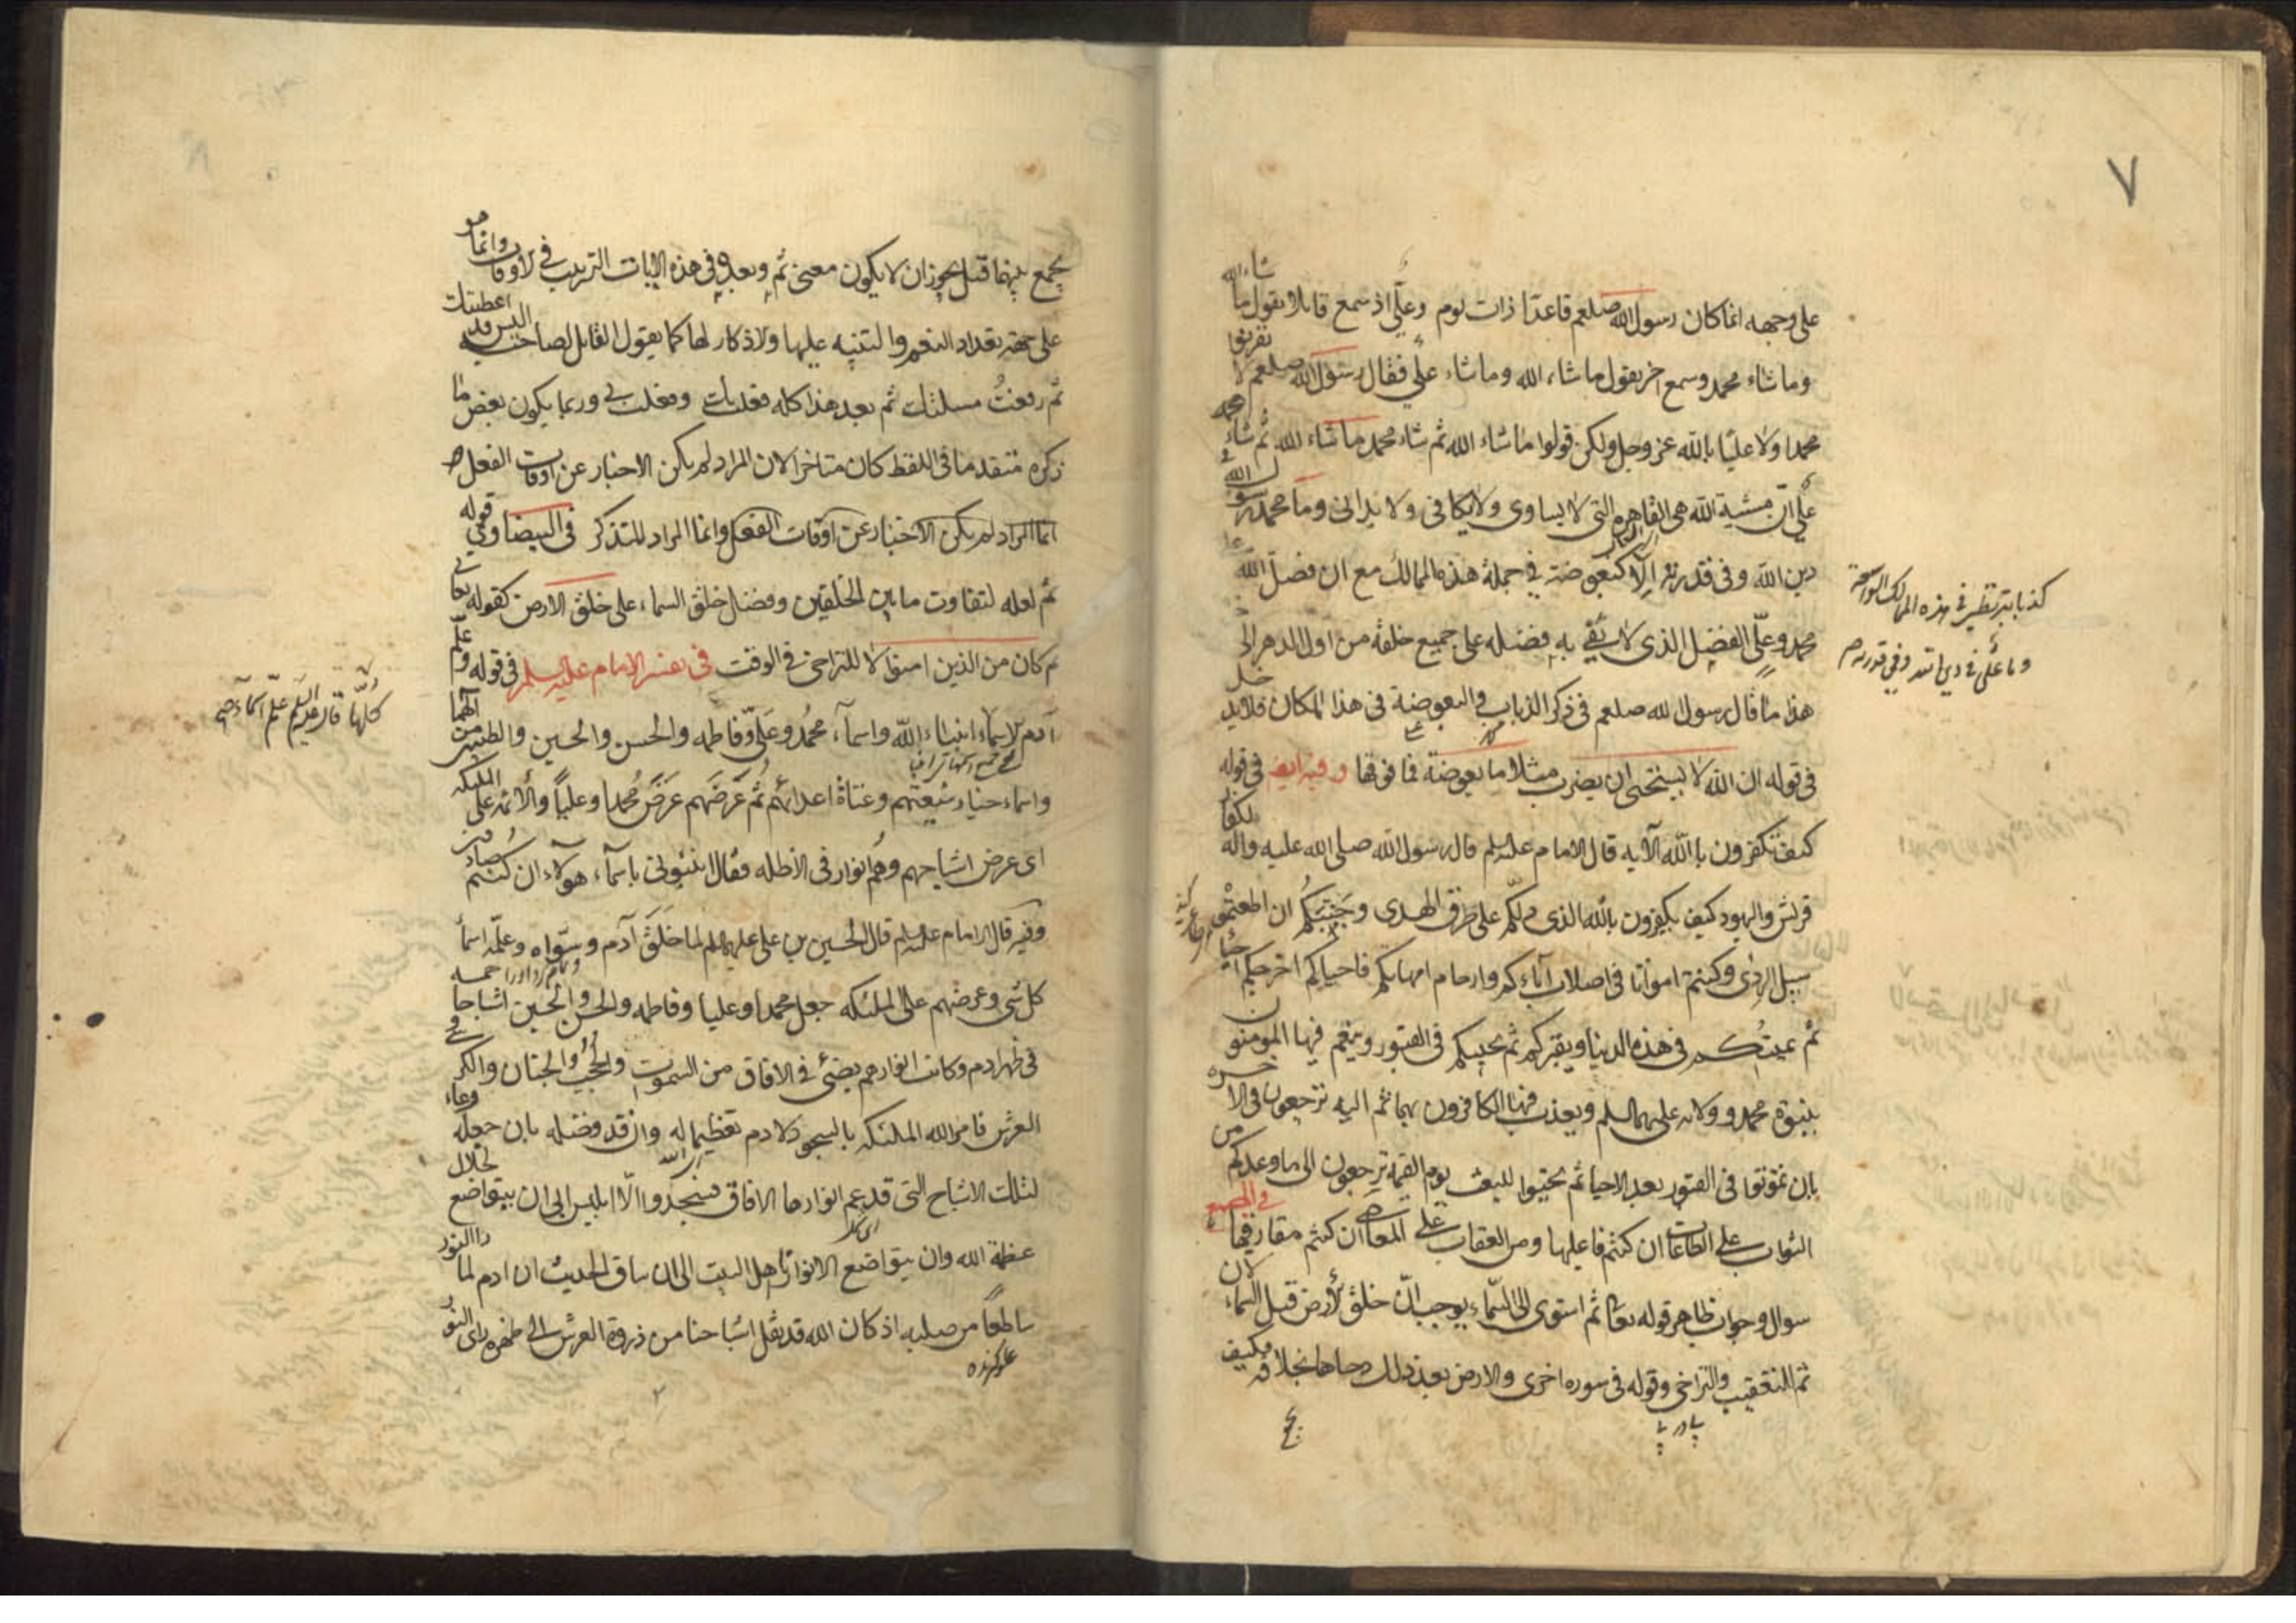 ٧
على وجهه انما كان رسول الله صلعم قاعدا ذات يوم وعلي اذ سمع قايلا يقول ما شاء الله
وما شاء محمد وسمع اخر يقول ما شاء الله وما شاء علي فقال رسول الله صلعم لا تقرنوا
محمدا ولا عليا بالله عز وجل ولكن قولوا ما شاء الله ثم شاء محمد ما شاء الله ثم شاء
علي ان مشية الله هي القاهرة التي لا تساوى ولا تكافى ولا تدانى وما محمد رسول الله في
دين الله وفي قدرته الا كبعوضة في جملة هذه الممالك مع ان فضل الله
محمد وعلي الفضل الذي لا يفي به فضله على جميع خلقه من اول الدهر الى
هذا ما قال رسول الله صلعم في ذكر الذباب والبعوضة في هذا المكان فلا يدخل
في قوله ان الله لا يستحيى ان يضرب مثلا ما بعوضة فما فوقها وفيه ايضا في قوله
كيف تكفرون بالله الآيه قال الامام عليه السلم قال رسول الله صلى الله عليه واله لكفار
قريش واليهود كيف تكفرون بالله الذي دلكم على طرق الهدى وجنبكم ان اطعتموه
سبيل الردى وكنتم امواتا في اصلاب آبائكم وارحام امهاتكم فاحياكم اخرجكم احيا
ثم يميتكم في هذه الدنيا ويقبركم ثم يحييكم في القبور وينعم فيها المومنون
بنبوة محمد وولاية علي عليهما السلم ويعذب فيها الكافرون بهما ثم اليه ترجعون في الاخره
بان تموتوا في القبور بعد الاحيا ثم تحيوا للبعث يوم القيمه ترجعون الى ما وعدكم من
الثواب على الطاعات ان كنتم فاعليها ومن العقاب على المعاصي ان كنتم مقارفيها
سوال وجواب ظاهر قوله تعا ثم استوى الى السماء يوجب ان خلق الارض قبل السماء لان
ثم للتعقيب والتراخي وقوله في سوره اخرى والارض بعد ذلك دحاها بخلافه فكيف
كذبابة تطير في هذه الممالك الواسعة
وما علي في دين الله وفي قدرته
يجمع بينهما قيل يجوز ان لا يكون معنى ثم وبعد في هذه الايات الترتيب في الاوقات وانما هو
على جهة تعداد النعم والتنبيه عليها والاذكار لها كما يقول القايل لصاحبه اليس قد اعطيتك
ثم رفعت منزلتك ثم بعد هذا كله فعلت بك وفعلت بي وربما يكون بعض ما
ذكره متقدما في اللفظ كان متاخرا لان المراد لم يكن الاخبار عن اوقات الفعل
انما المراد لم يكن الاخبار عن اوقات الفعل وانما المراد للتذكر في البيضاوي قوله
ثم لعله لتفاوت ما بين الخلقين وفضل خلق السماء على خلق الارض كقوله تعا
ثم كان من الذين امنوا لا للتراخي في الوقت في تفسير الامام عليه السلم في قوله وعلم
آدم الاسماء انبياء الله واسماء محمد وعلي وفاطمه والحسن والحسين والطيبين من الهما
واسماء خيار شيعتهم وعتاة اعدائهم ثم عرضهم عرض محمدا وعليا والأئمه على الملئكه
اى عرض اشباحهم وهم انوار في الاظله فقال انبئوني باسماء هولاء ان كنتم صادقين
وفيه قال الامام عليه السلم قال الحسين بن علي عليهما السلم لما خلق آدم وسواه وعلمه اسما
كل شى وعرضهم على الملئكه جعل محمدا وعليا وفاطمه والحسن والحسين اشباحا خمسه
في ظهر ادم وكانت انوارهم يضئ في الافاق من السموات والحجب والجنان والكرسي و
العرش فامر الله الملئكه بالسجود لادم تعظيما له وان قد فضله بان جعله وعاء
لتلك الاشباح التي قد عم انوارها الافاق فسجدوا الا ابليس ابى ان يتواضع لجلال
عظمة الله وان يتواضع لانوار اهل البيت الى ان ساق الحديث ان ادم لما راى النور
ساطعا من صلبه اذ كان الله قد نقل اشباحنا من ذروة العرش الى ظهره راى النور
كلها قال عليه السلم علم اسماء